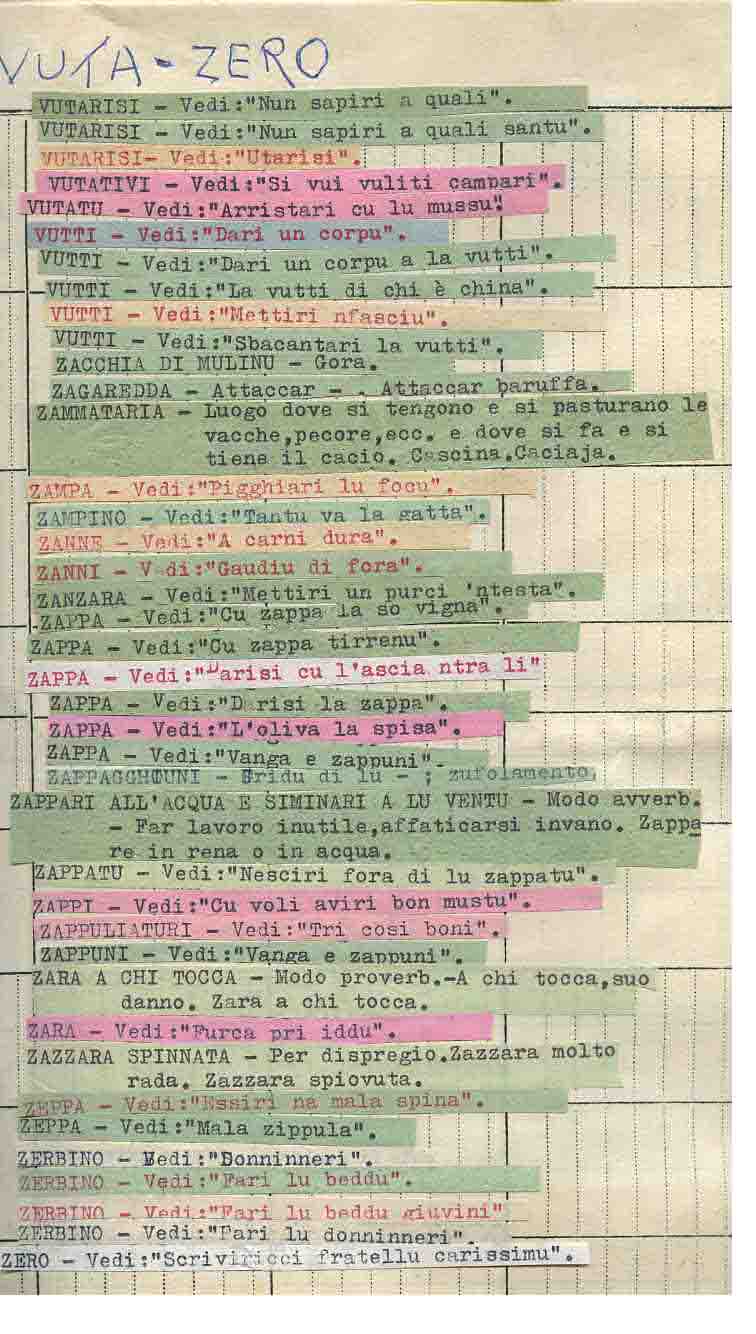 VUTA - ZERO
VUTARISI - Vedi:"Nun sapiri a quali".
VUTARISI - Vedi:"Nun sapiri a quali santu".
VUTARISI- Vedi:"Utarisi".
VUTATIVI - Vedi:"Si vui vuliti campari".
VUTATU - Vedi:"Arristari cu lu mussu".
VUTTI - Vedi:"Dari un corpu".
VUTTI - Vedi:"Dari un corpu a la vutti".
VUTTI - Vedi:"La vutti di chi è china".
VUTTI - Vedi:"Mettiri nfasciu".
VUTTI - Vedi:"Sbacantari la vutti".
ZACCHIA DI MULINU - Gora.
ZAGAREDDA - Attaccar - . Attaccar baruffa.
ZAMMATARIA - Luogo dove si tengono e si pasturano le
vacche,pecore,ecc. e dove si fa e si
tiene il cacio. Cascina.Caciaja.
ZAMPA - Vedi:"Pigghiari lu focu".
ZAMPINO - Vedi:"Tantu va la gatta".
ZANNE - Vedi:"A carni dura".
ZANNI - V di:"Gaudiu di fora".
ZANZARA - Vedi:"Mettiri un purci 'ntesta".
ZAPPA - Vedi:"Cu zappa la so vigna".
ZAPPA - Vedi:"Cu zappa tirrenu".
ZAPPA - Vedi:"Darisi cu l'ascia ntra li"
ZAPPA - Vedi:"Darisi la zappa".
ZAPPA - Vedi:"L'oliva la spisa".
ZAPPA - Vedi:"Vanga e zappuni".
ZAPPAGGHIUNI - Gridu di lu - ; zufolamento.
ZAPPARI ALL'ACQUA E SIMINARI A LU VENTU - Modo avverb.
- Far lavoro inutile,affaticarsi invano. Zappa
re in rena o in acqua.
ZAPPATU - Vedi:"Nesciri fora di lu zappatu".
ZAPPI - Vedi:"Cu voli aviri bon mustu".
ZAPPULIATURI - Vedi:"Tri cosi boni".
ZAPPUNI - Vedi:"Vanga e zappuni".
ZARA A CHI TOCCA - Modo proverb.-A chi tocca,suo
danno. Zara a chi tocca.
ZARA - Vedi:"Furca pri iddu".
ZAZZARA SPINNATA - Per dispregio.Zazzara molto
rada. Zazzara spiovuta.
ZEPPA - Vedi:"Essiri na mala spina".
ZEPPA - Vedi:"Mala zippula".
ZERBINO - Vedi:"Donninneri".
ZERBINO - Vedi:"Fari lu beddu".
ZERBINO - Vedi:"Fari lu beddu giuvini"
ZERBINO - Vedi:"Fari lu donninneri".
ZERO - Vedi:"Scriviricci fratellu carissimu".